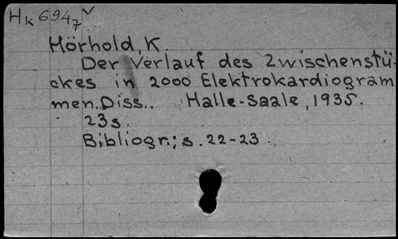 Hk 6947 v
Hörhold, K.
Der Verlauf des Zwischenstü-
ckes in 2000 Elektrokardiogram
men. Diss.. Halle-Saale, 1935.
23s.
Bibliogr.; s. 22-23.